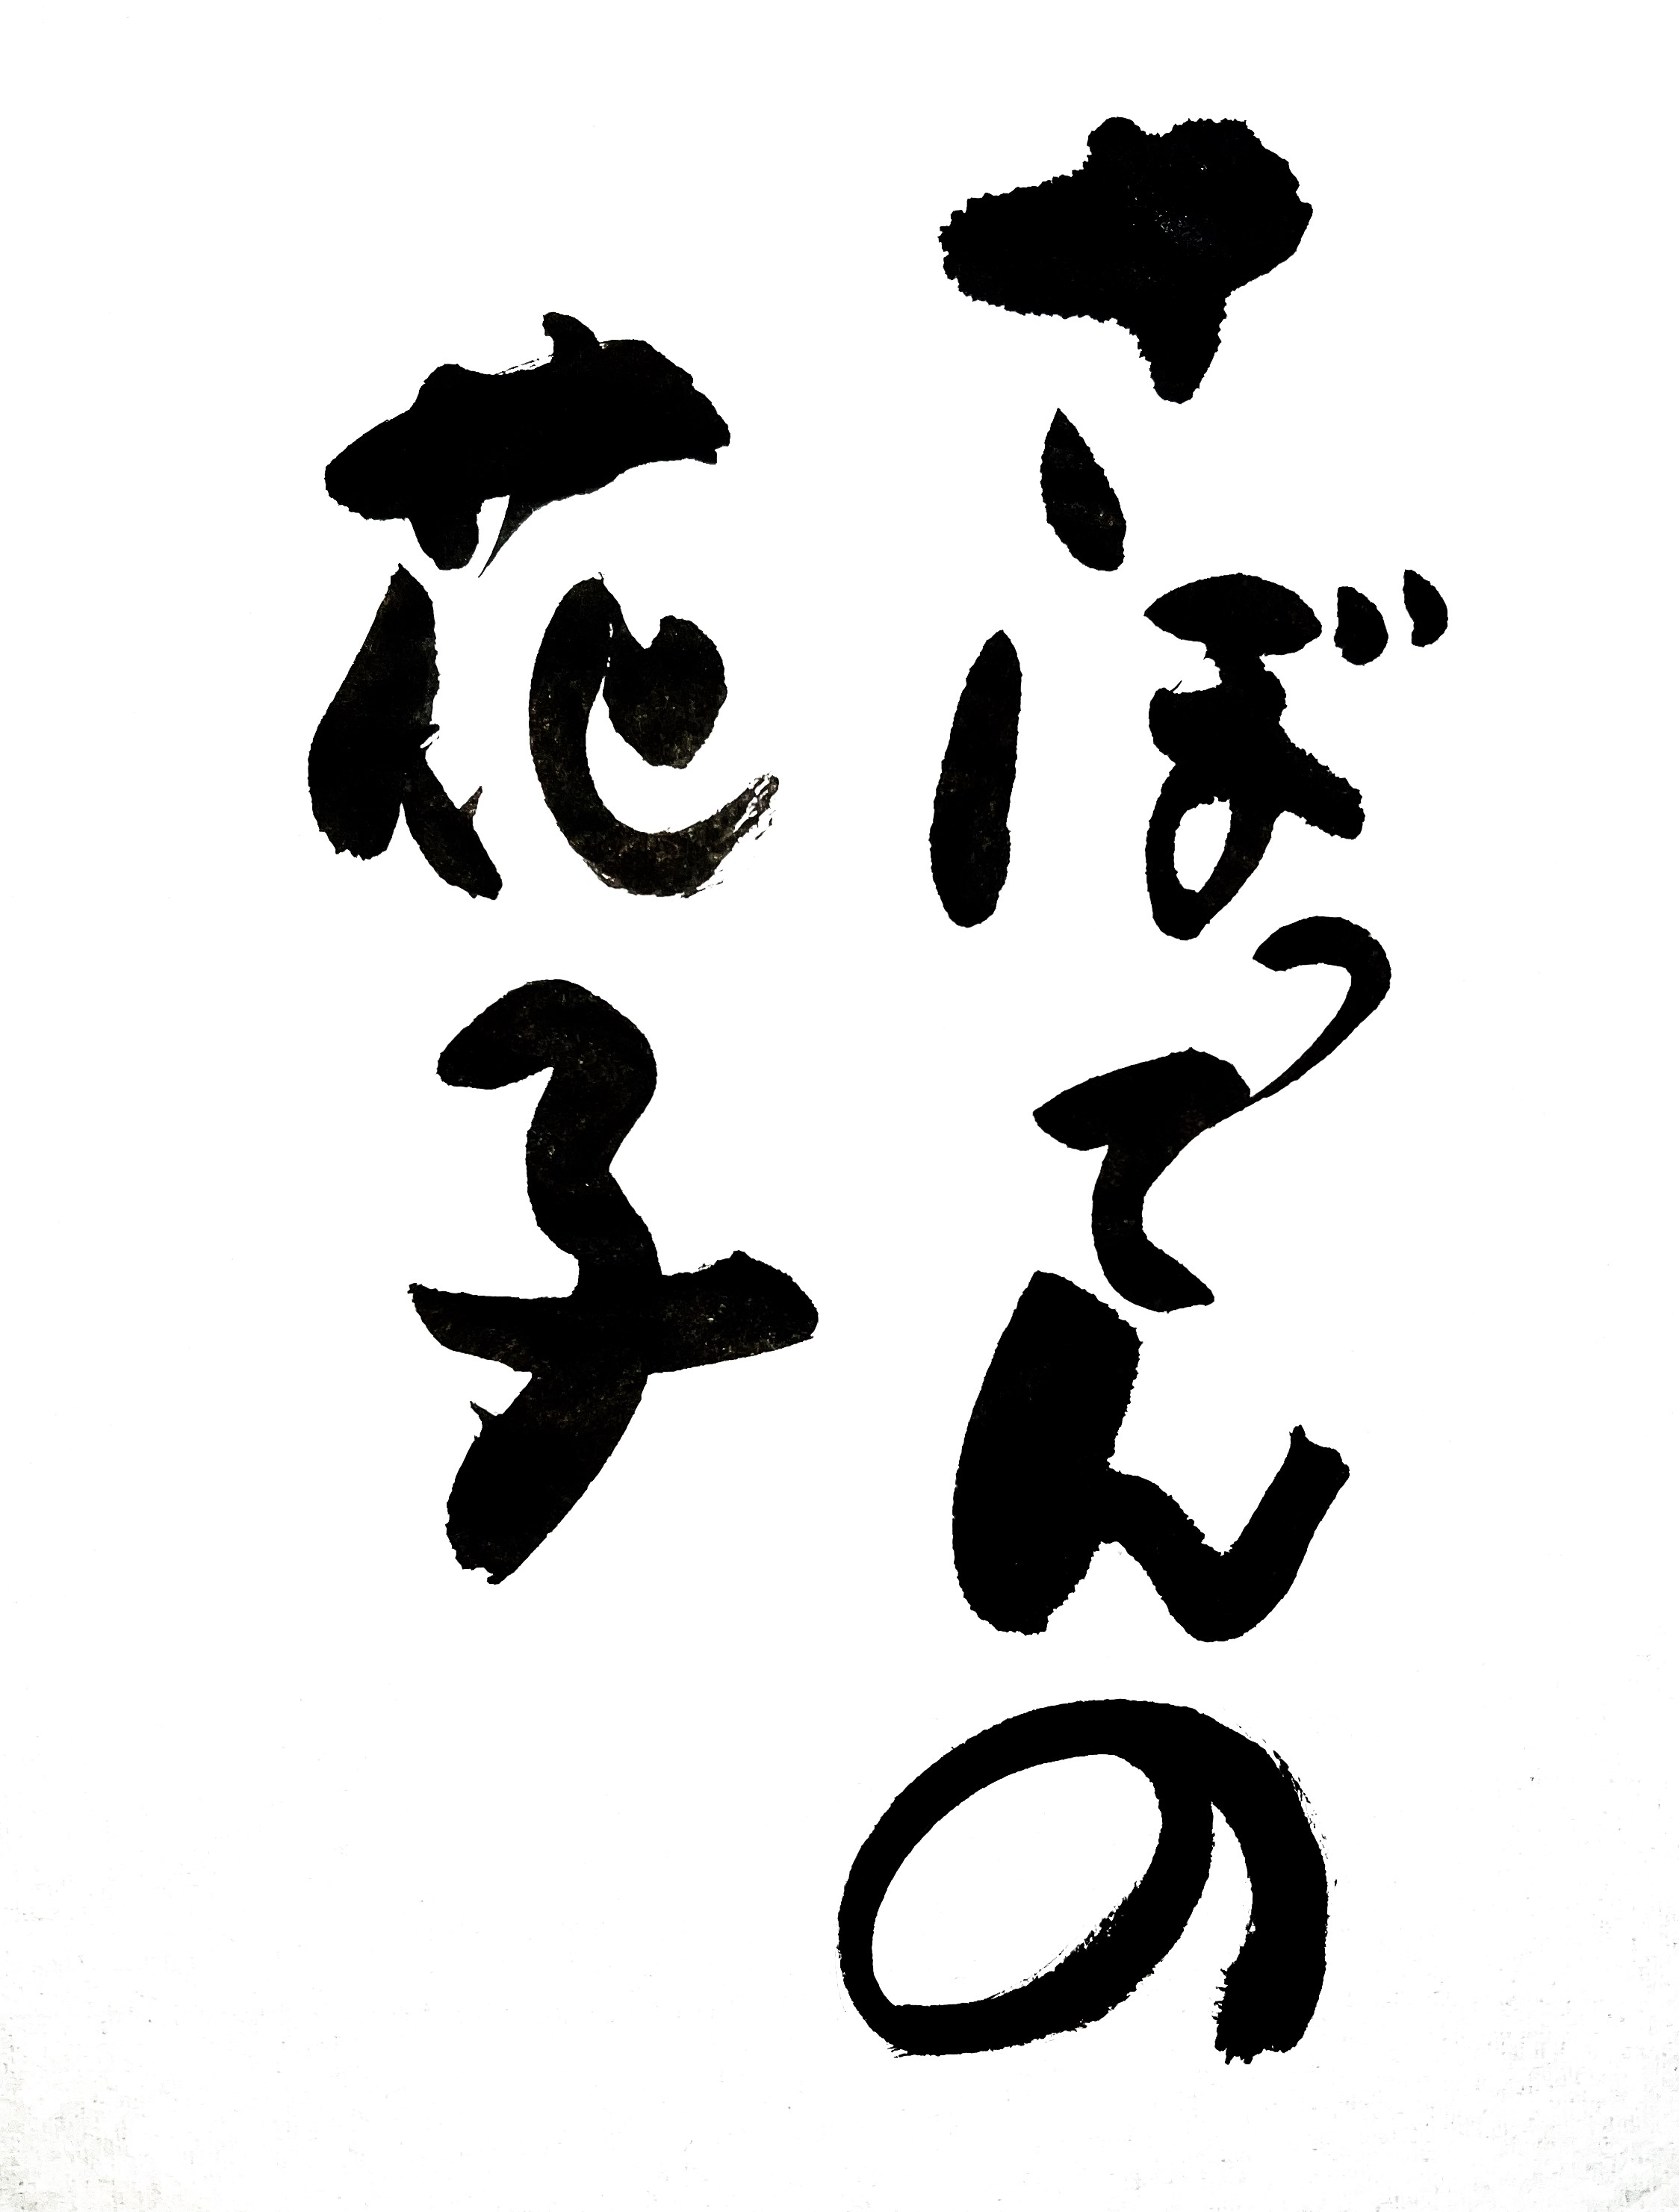 さぼってんの
花子